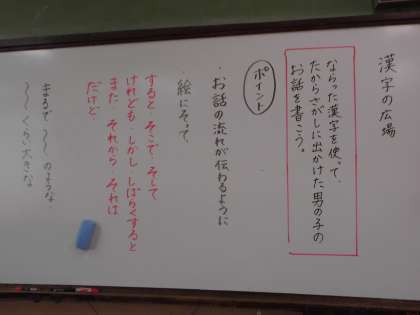 漢字の広場
ならった漢字を使って、
たからさがしに出かけた男の子の
お話を書こう。
ポイント
・お話の流れが伝わるように
・絵にそって
すると・そこで・そして
けれども・しかし・しばらくすると
また・それから・それは
だけど・
まるで〜〜のような
〜〜くらい大きな